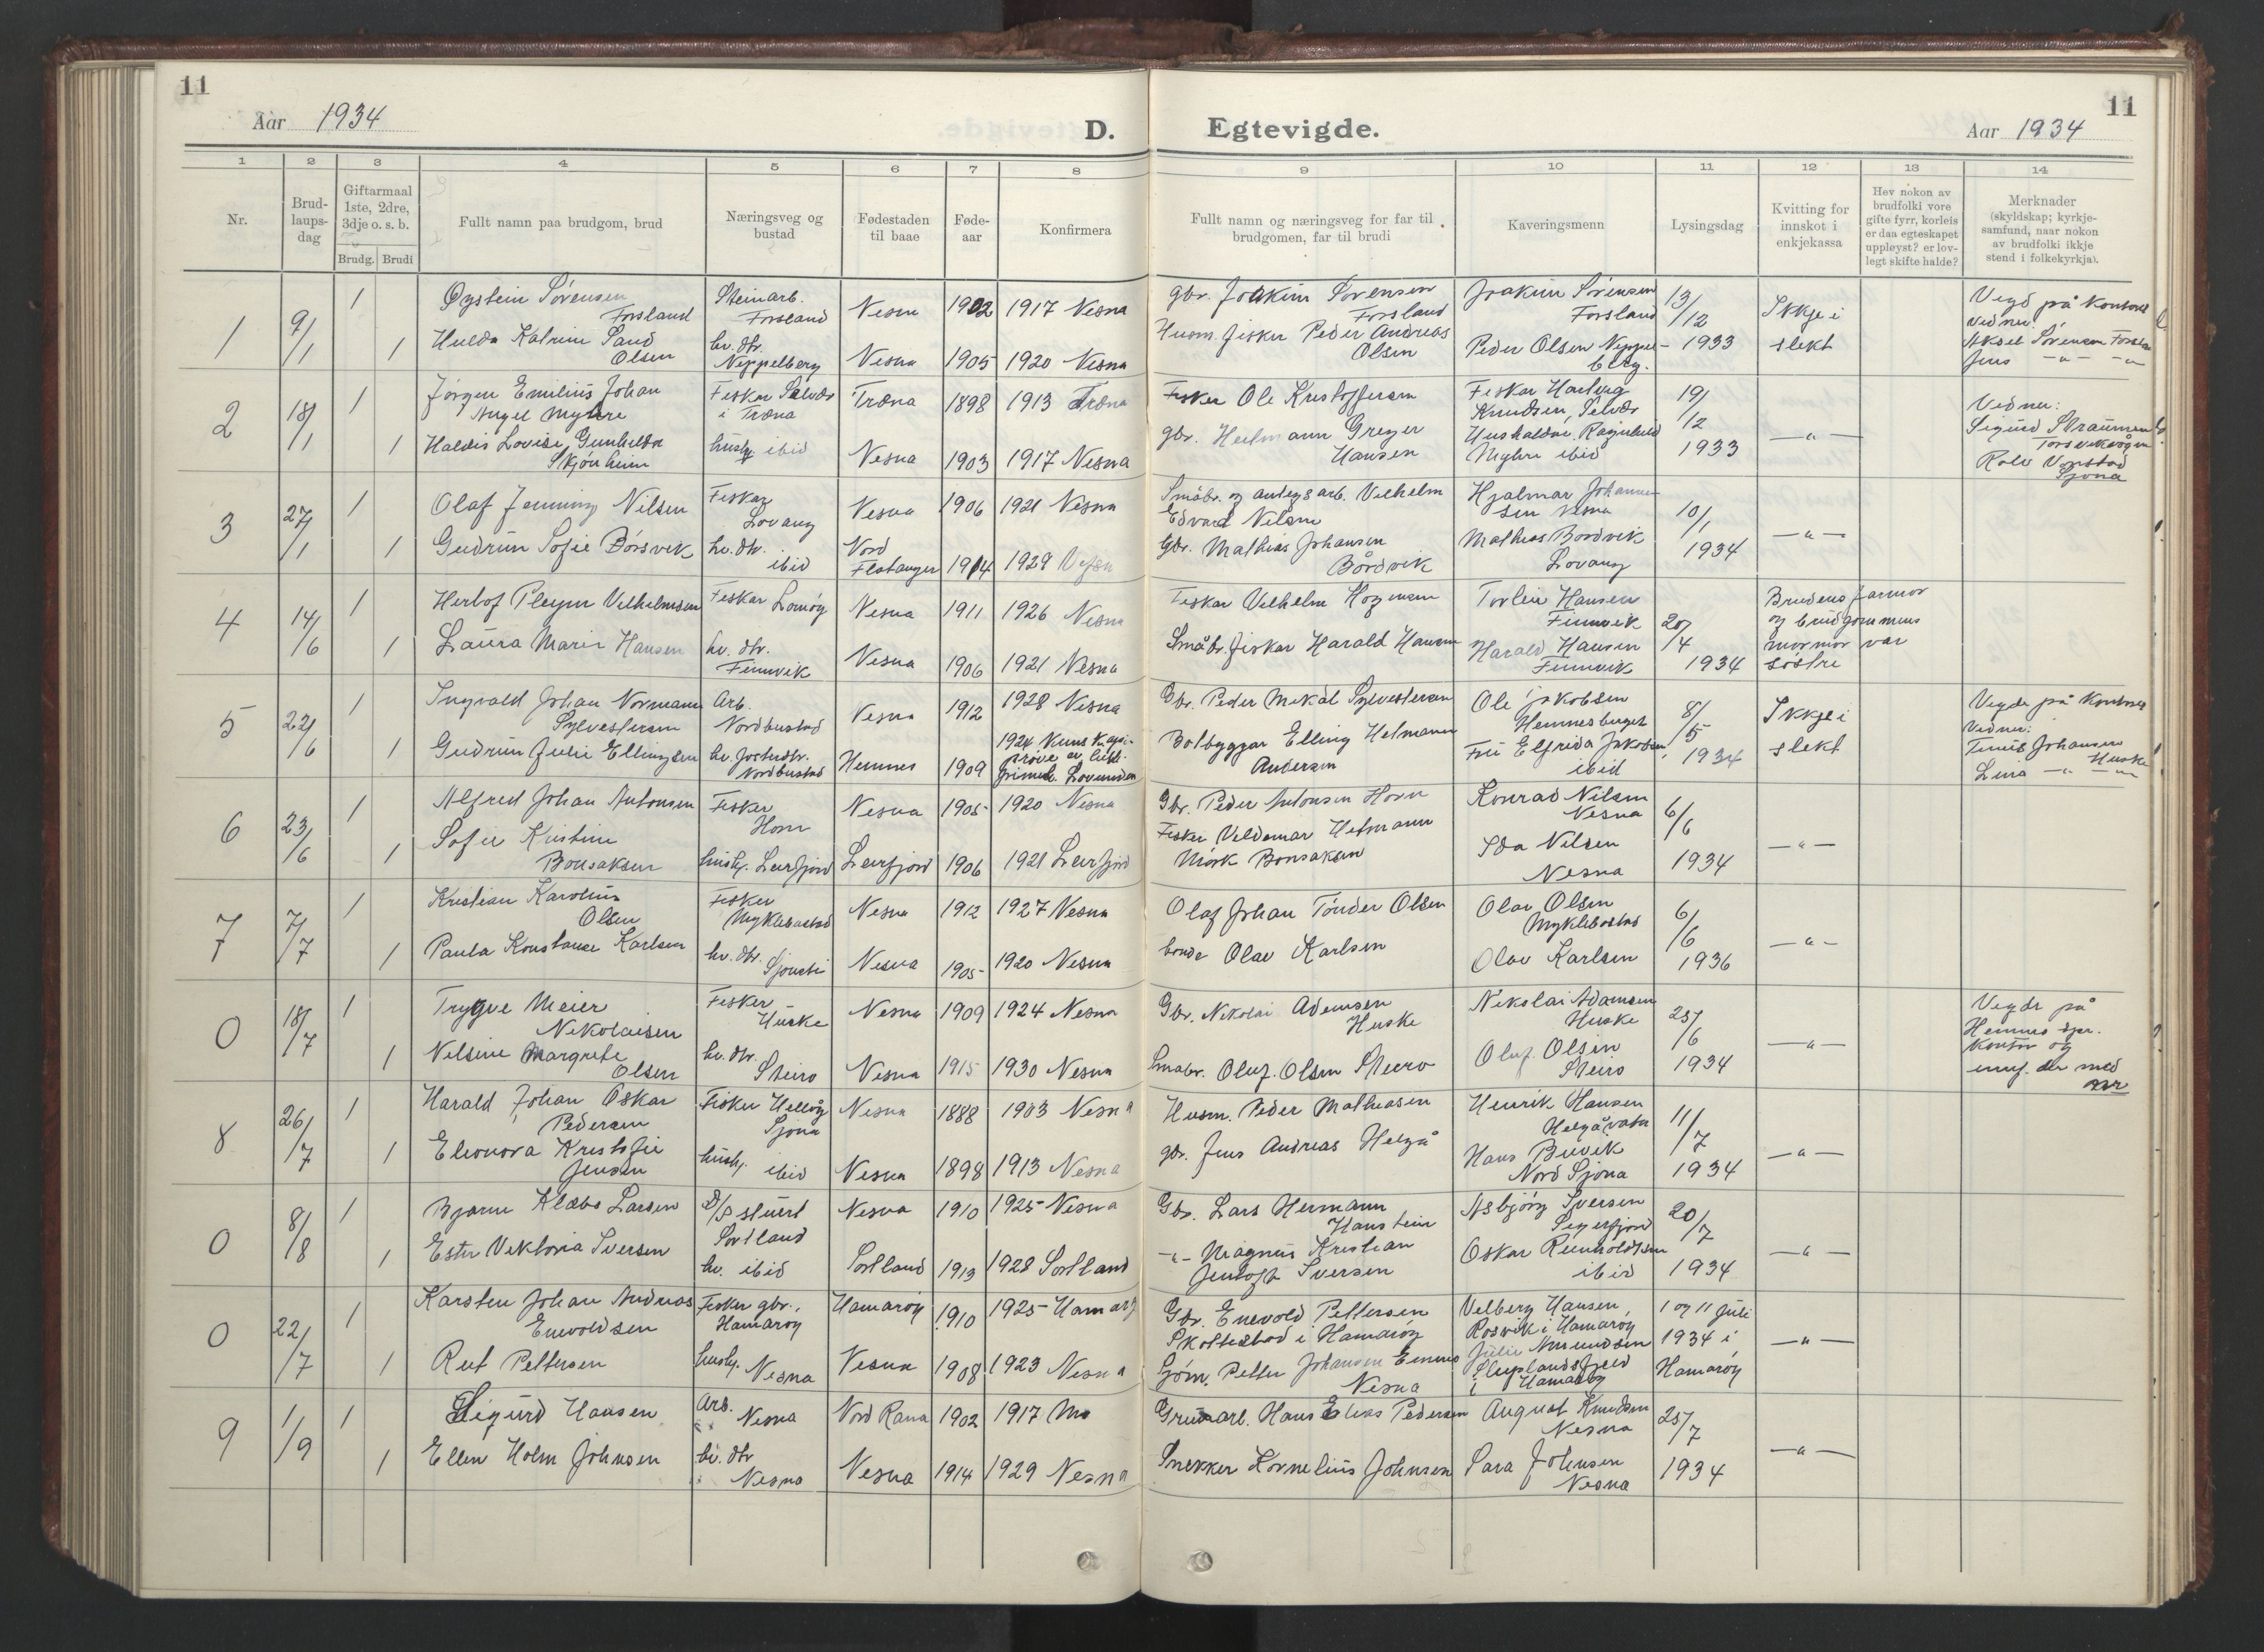 11
Aar 1934
D.
Egtevigde.
Aar 1934
11
1 2 3 4 5 6 7 8 9 10 11 12 13 14
Nr.
Brud-
laups-
dag
Giftarmaal
1ste, 2dre,
3dje o. s. b.
Brudg. Brudi
Fullt namn paa brudgom, brud
Næringsveg og
bustad
Fødestaden
til baae
Føde-
aar
Konfirmera
Fullt namn og næringsveg for far til
brudgomen, far til brudi
Kaveringsmenn
Lysingsdag
Kvitting for
innskot i
enkjekassa
Hev nokon av
brudfolki vore
gifte fyrr, korleis
er daa egteskapet
uppløyst? er lov-
legt skifte halde?
Merknader
(skyldskap; kyrkje-
samfund, naar nokon
av brudfolki ikkje
stend i folkekyrkja).
1
9/1
1
Øystein Sørensen
Forsland
Steinarb.
Forsland
Nesna
1902
1917 Nesna
gbr. Joakim Sørensen
Forsland
Joakim Sørensen
Forsland
13/12
1933
Ikkje i
slekt
Vigd på kontoret
Vidner:
Aksel Sørensen
Jens -"- -"-
1
Hulda Katrine Sand
Olsen
hv. dtr.
Neppelberg
Nesna
1905
1920 Nesna
Husm. fisker Peder Andreas
Olsen
Peder Olsen Neppel-
berg.
2
18/1
1
Jørgen Emilius Johan
Angel Myhre
Fiskar Selvær
i Træna
Træna
1898
1913 Træna
Fisker Ole Kristoffersen
Fiskar Hartvig
Knudsen, Selvær
19/12
1933
-"-
Vidner:
Sigurd Straumen
Rolv
Sjona
1
Haldis Lovise Gunhilda
Skjønheim
hush. ibid
Nesna
1903
1917 Nesna
gbr. Heelmann Greger
Hansen
Myhre ibid
3
27/1
1
Olaf Jenning Nilsen
Fiskar
Lovang
Nesna
1906
1921 Nesna
Småbr. og anlegsarb. Vilhelm
Edvard Nilsen
Hjalmar Johanne-
sen Nesna
10/1
1934
-"-
1
Gudrun Sofie Børsvik
hv. dtr.
ibid
Nord
Flatanger
1914
1929 Vefsn
Gbr. Mathias Johansen
Bårdvik
Mathias Bordvik
Lovang
4
14/6
1
Herlof Pleym Vilhelmsen
Fiskar Tomøy
Nesna
1911
1926 Nesna
Fiskar Vilhelm
Torlein Hansen
Finnvik
20/4
1934
Brudens farmor
og brudgommens
mormor var
søstre
1
Laura Marie Hansen
hv. dtr.
Finnvik
Nesna
1906
1921 Nesna
Småbr. fiskar Harald Hansen
Harald Hansen
Finnvik
5
22/6
1
Ingvald Johan Normann
Sylvestersen
Arb.
Nordbustad
Nesna
1912
1928 Nesna
Gbr. Peder Mikal Sylvestersen
Ole Jakobsen
Hemnesberget
8/5
1934
Ikkje i
slekt
Vigde på kontoret
Vidner:
Johansen
Huske
Lina -"- -"-
1
Gudrun Julie Ellingsen
hv. fosterdtr.
Nordbustad
Hemnes
1909
1924
Bolbyggar Elling Helmann
Andersen
Fru Elfrida Jakobsen
ibid
6
23/6
1
Alfred Johan Antonsen
Fisker
Horn
Nesna
1905
1920 Nesna
Gbr. Peder Antonsen Horn
Konrad Nilsen
Nesna
6/6
1934
-"-
1
Sofie Kristine
Bonsaksen
hush. Leirfjord
Leirfjord
1906
1921 Leirfjord
Fisker Valdemar Helmann
Mørk Bonsaksen
Ida Nilsen
Nesna
7
7/7
1
Kristian Karolius
Olsen
Fisker
Myklebustad
Nesna
1912
1927 Nesna
Olaf Johan Tønder Olsen
Olav Olsen
Myklebostad
6/6
1936
-"-
1
Paula Konstanse Karlsen
hv. dtr.
Nesna
1905
1920 Nesna
bonde Olav Karlsen
Olav Karlsen
0
18/7
1
Trygve Meier
Nikolaisen
Fisker
Huske
Nesna
1909
1924 Nesna
Gbr. Nikolai Adamsen
Huske
Nikolai Adamsen
Huske
25/6
1934
-"-
Vigde på
Hemnes spr.
kontor og
innf. der med
nr
1
Nelsine Margrete
Olsen
hv. dtr.
Steiro
Nesna
1915
1930 Nesna
Småbr. Oluf Olsen Steiro
Oluf. Olsen
Steiro
8
26/7
1
Harald Johan Oskar
Pedersen
Fisker Helgåg
Sjona
Nesna
1888
1903 Nesna
Husm. Peder Mathiasen
Henrik Hansen
Helgåvatn
11/7
1934
-"-
1
Eleonora Kristofie
Jensen
hush. ibid
Nesna
1898
1913 Nesna
gbr. Jens Andreas Helgå
Hans Buvik
Nord Sjona
0
8/8
1
Bjarne Klæbo Larsen
D/S stuert
Sortland
Nesna
1910
1925 Nesna
Gbr. Lars Hermann
Hanstein
Asbjørg Iversen
Sigerfjord
20/7
1934
-"-
1
Ester Viktoria Iversen
hv. ibid
Sortland
1913
1928 Sortland
-"- Magnus Kristian
Jentoft Iversen
Oskar Reinholdtsen
ibid
0
22/7
1
Karsten Johan Andreas
Enevoldsen
Fisker gbr.,
Hamarøy
Hamarøy
1910
1925 Hamarøy
Gbr. Enevold Pettersen
Skottestad i Hamarøy
Velberg Hansen,
Rosvik i Hamarøy
1 og 11 juli
1934 i
Hamarøy
-"-
1
Rut Pettersen
hush. Nesna
Nesna
1908
1923 Nesna
Sjøm. Petter Johansen
Nesna
Julie Amundsen
i Hamarøy
9
1/9
1
Sigurd Hansen
Arb.
Nesna
Nord Rana
1902
1917 Mo
Gruvearb. Hans Elias Pedersen
August Knudsen
Nesna
25/7
1934
-"-
1
Ellen Holm Johnsen
hv. dtr
Nesna
Nesna
1914
1929 Nesna
Snekker Kornelius Johnsen
Sara Johnsen
Nesna